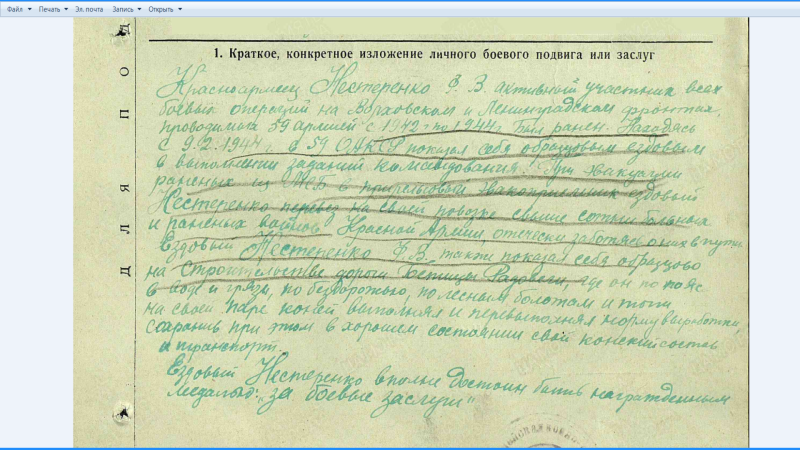 Файл Печать Эл. почта Запись Открыть
ДЛЯ ПОД
1. Краткое, конкретное изложение личного боевого подвига или заслуг
Красноармеец Нестеренко Ф. В. активный участник всех
боевых операций на Волховском и Ленинградском фронтах,
проводимых 59 армией с 1942 по 1944г. Был ранен. Находясь
с 9.2.1944г. в 59 показал себя образцовым ездовым
в выполнении заданий командования. При эвакуации
раненых из МСБ в ездовый
Нестеренко перевез на своей повозке свыше сотни больных
и раненых воинов Красной Армии, отечески заботясь о них в пути.
Ездовый Нестеренко Ф. В. также показал себя образцово
на строительстве дороги где он по пояс
в воде и грязи, по бездорожью, по лесным болотам и топям
на своей паре коней выполнял и перевыполнял норму выработки,
сохранив при этом в хорошем состоянии свой конский состав
и транспорт.
Ездовый Нестеренко вполне достоин быть награжденным
медалью: „за боевые заслуги"